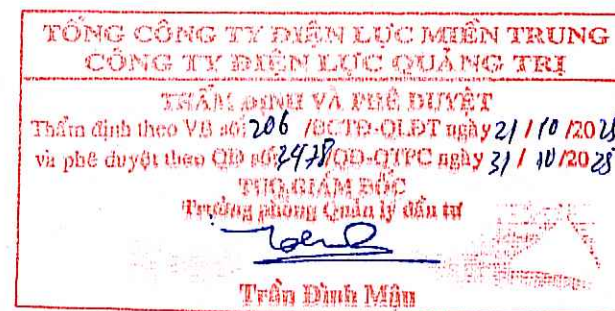 TỔNG CÔNG TY ĐIỆN LỰC MIỀN TRUNG
CÔNG TY ĐIỆN LỰC QUẢNG TRỊ
THẨM ĐỊNH VÀ PHÊ DUYỆT
Thẩm định theo VB số: 206 /BCTĐ-QLĐT ngày 21 / 10 /2025
và phê duyệt theo QĐ số: 2478/QĐ-QTPC ngày 31 / 10 /2025
TUQ.GIÁM ĐỐC
Trưởng phòng Quản lý đầu tư
Trần Đình Mậu